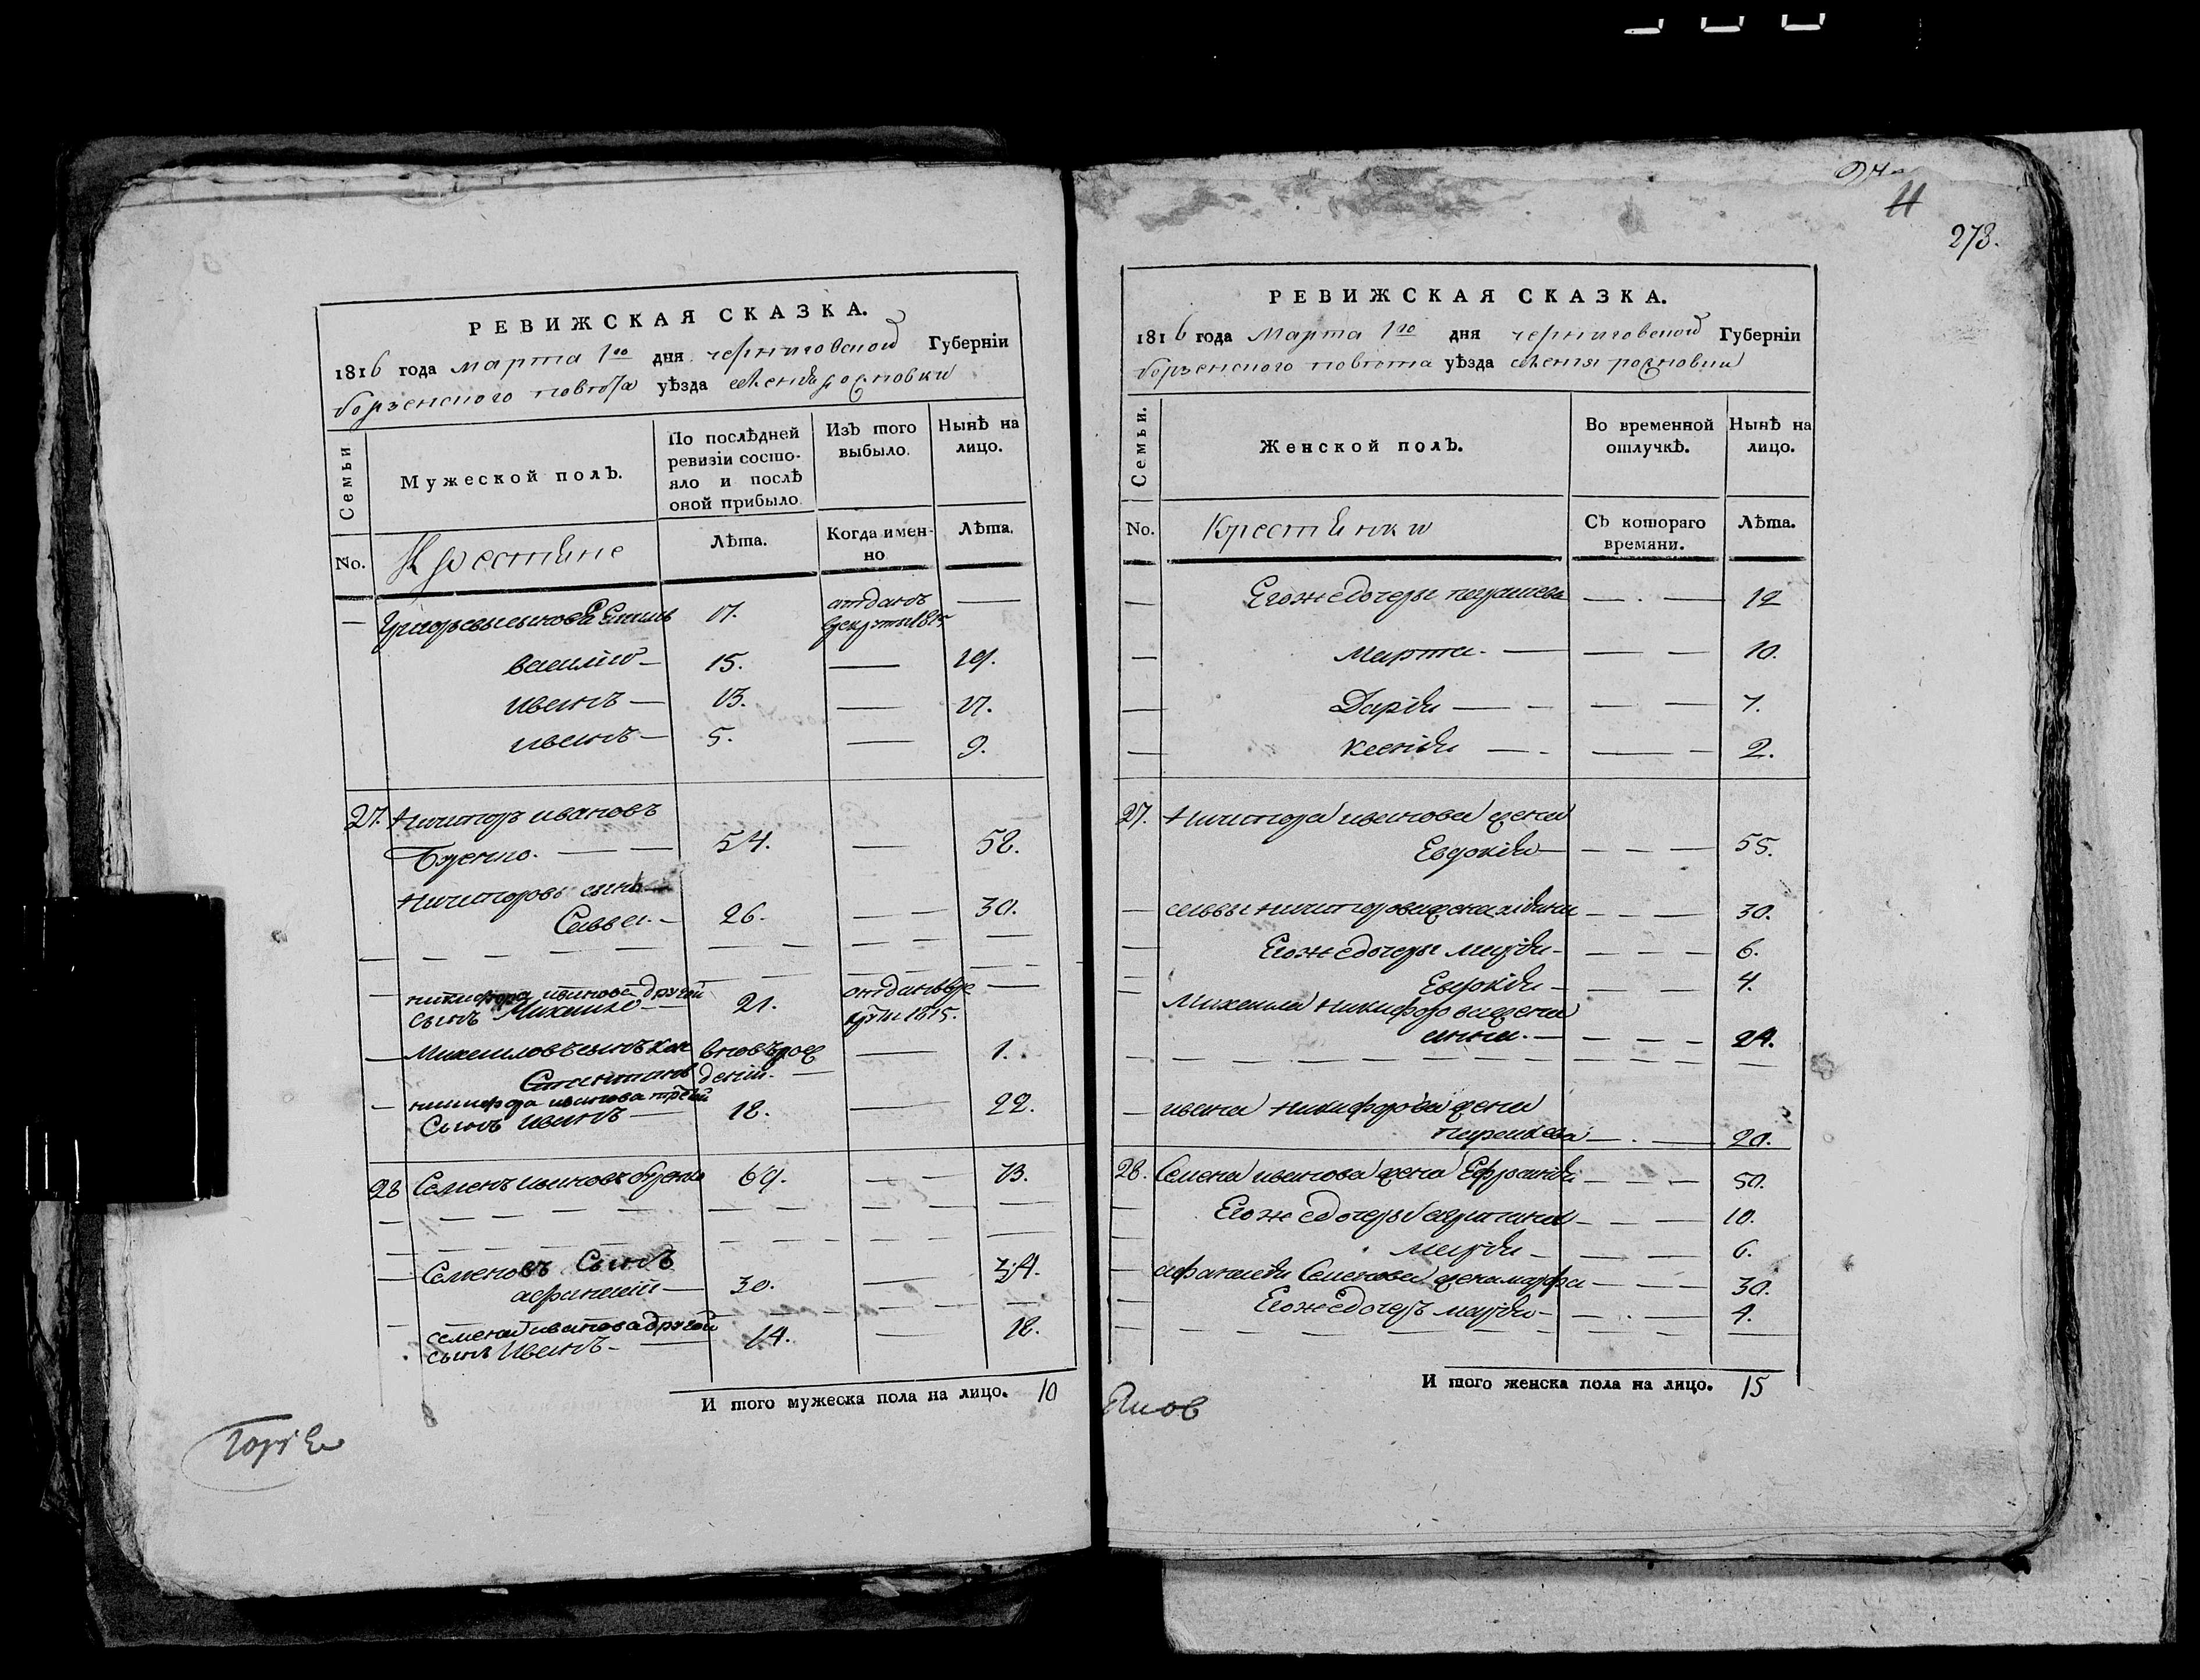 РЕВИЖСКАЯ СКАЗКА.
1816 года марта 1го дня черниговской Губерніи
борзенского повѣта уѣзда
Семьи
Мужеской полЪ.
По послѣдней ревизіи состояло и послѣ оной прибыло.
ИзЪ того выбыло.
Нынѣ на лицо.
No.
Крестяне
Лѣта.
Когда имен-
но
Лѣта.
— Григорьевы сынова 17. отданъ —
1815
василій — 15. — 19.
иванъ — 13. — 17.
иванъ — 5. — 9.
27. Никифоръ ивановъ
54. — 58.
Никифоровъ сынъ
Савва. — 26. — 30.
никифора иванова другой
сынъ Михайло — 21. отданъ —
1815.
Михайловъ сынъ Кон вновь рож — 1.
стантинъ деній. —
никифора иванова третій
Сынъ иванъ — 18. — 22.
28 Семенъ ивановъ 69. — 73.
Семеновъ Сынъ
афанасій — 30. — 34.
семена иванова другой
сынъ Иванъ — 14. — 18.
И того мужеска пола на лицо. 10
11
273.
РЕВИЖСКАЯ СКАЗКА.
1816 года Марта 1го дня черниговской Губерніи
борзенского повѣта уѣзда
Семьи.
Женской полЪ.
Во временной отлучкѣ.
Нынѣ на лицо.
No.
Крестянки
СЪ котораго времяни.
Лѣта.
— Егоже дочеры — 12
— Марта — — 10.
— Дарія — — 7.
— Ксенія — — 2.
27. Никифора иванова жена
Евдокія — — 55.
— саввы никифорова жена — 30.
— Егоже дочеры марія — — 6.
— Евдокія — — 4.
Михайла никифорова жена
анна. — — 24.
— ивана никифорова жена
параскева — — 20.
28. Семена иванова жена — 50.
— Егоже дочеры — 10.
— марія — — 6.
— афанасія Семенова жена марфа — 30.
— Егоже дочеръ марія — — 4.
И того женска пола на лицо. 15